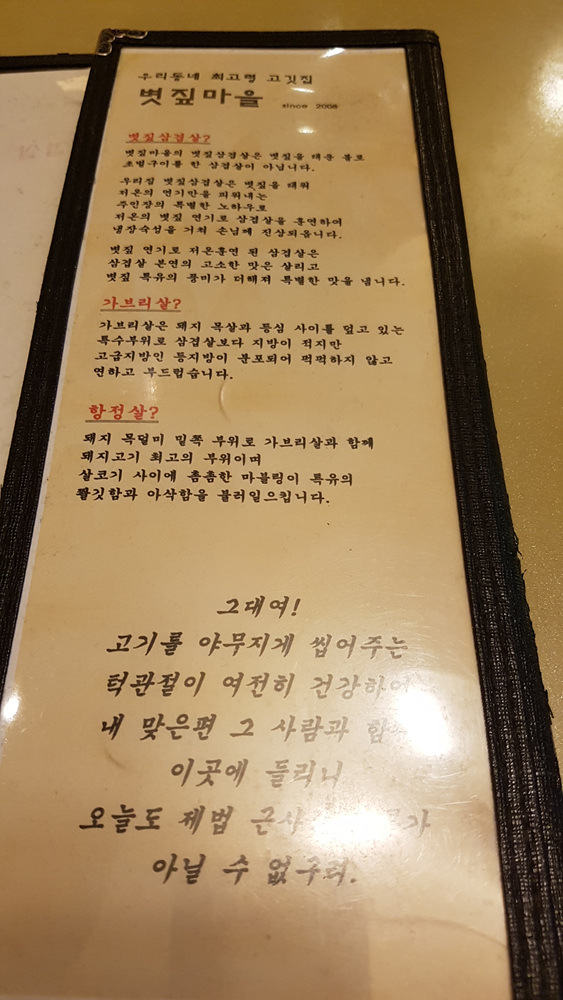 우리동네 최고령 고깃집
볏짚마을 since 2008
볏짚삼겹살?
볏짚마을의 볏짚삼겹살은 볏짚을 태운 불로
초벌구이를 한 삼겹살이 아닙니다.
우리집 볏짚삼겹살은 볏짚을 태워
저온의 연기만을 피워내는
주인장의 특별한 노하우로
저온의 볏짚 연기로 삼겹살을 훈연하여
냉장숙성을 거쳐 손님께 진상되옵니다.
볏짚 연기로 저온훈연 된 삼겹살은
삼겹살 본연의 고소한 맛은 살리고
볏짚 특유의 풍미가 더해져 특별한 맛을 냅니다.
가브리살?
가브리살은 돼지 목살과 등심 사이를 덮고 있는
특수부위로 삼겹살보다 지방이 적지만
고급지방인 등지방이 분포되어 퍽퍽하지 않고
연하고 부드럽습니다.
항정살?
돼지 목덜미 밑쪽 부위로 가브리살과 함께
돼지고기 최고의 부위이며
살코기 사이에 촘촘한 마블링이 특유의
쫄깃함과 아삭함을 불러일으킵니다.
그대여!
고기를 야무지게 씹어주는
턱관절이 여전히 건강하여
내 맞은편 그 사람과
이곳에 들리니
오늘도 제법
아닐 수 없구려.